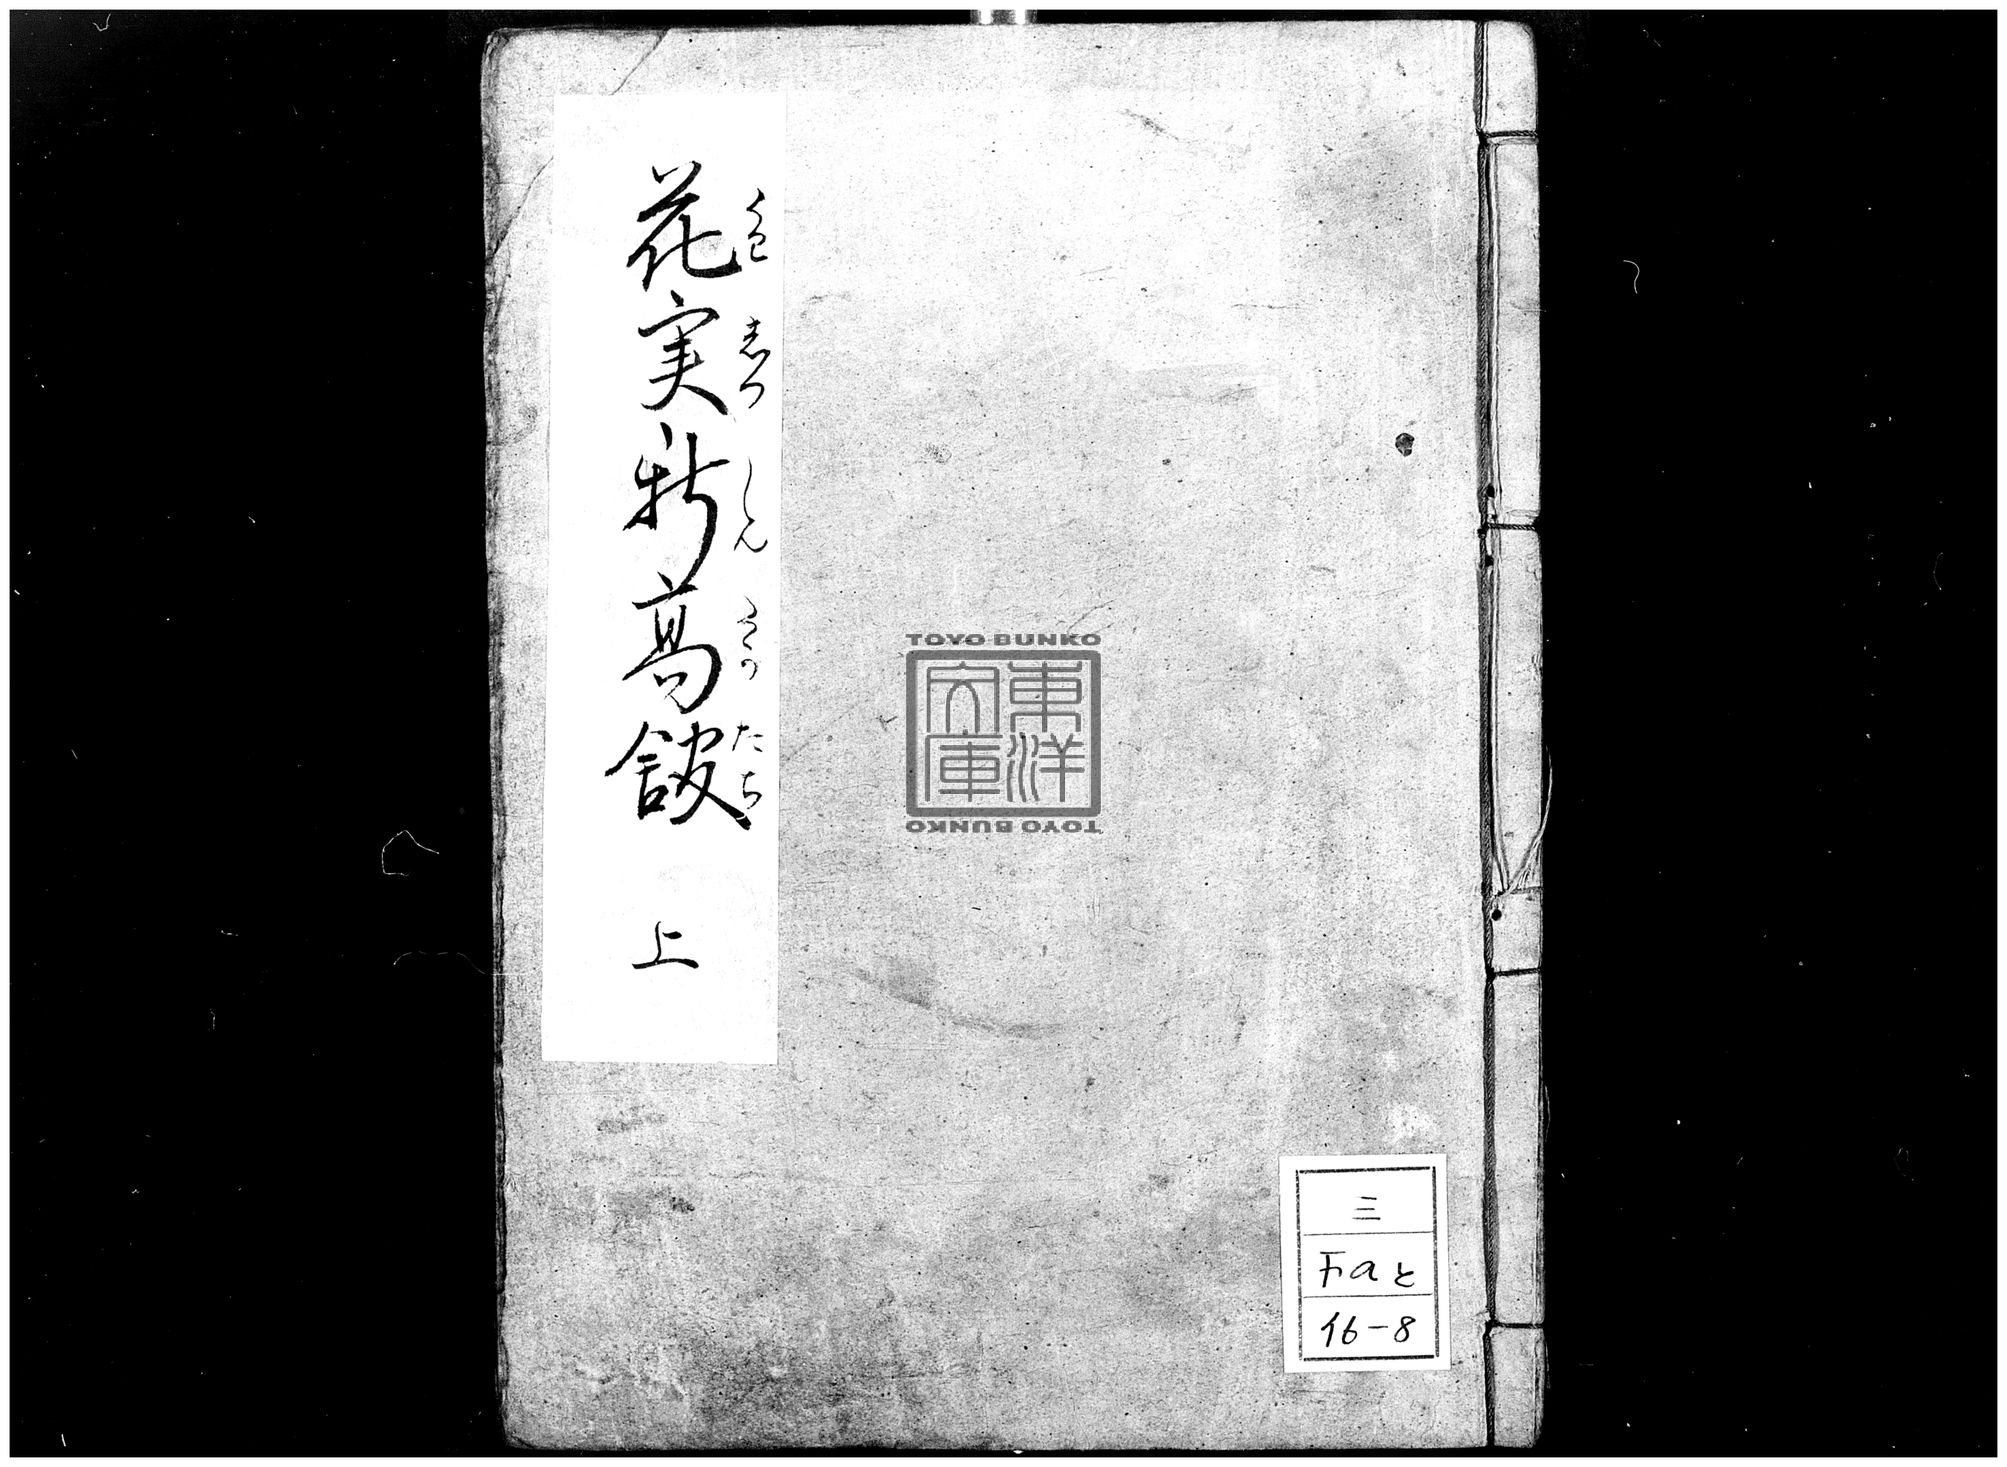 花実新高舘 上
くわ じつ しん たか たち
TOYO BUNKO
東洋文庫
TOYO BUNKO
三
Fa と
16-8